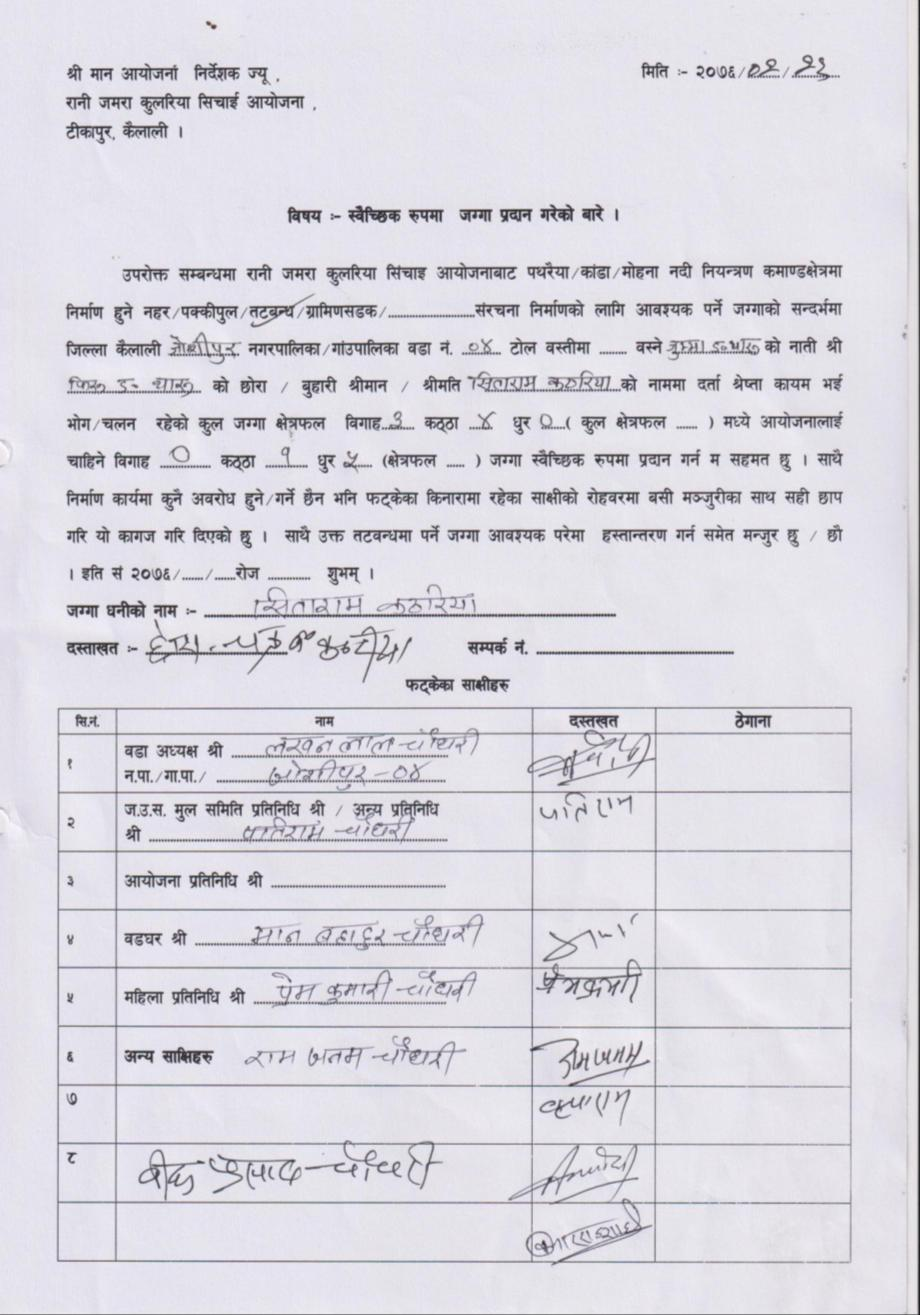 श्री मान आयोजनां निर्देशक ज्यू ,
मिति :- २०७६/०२/२३
रानी जमरा कुलरिया सिचाई आयोजना ,
टीकापुर, कैलाली ।
विषय :- स्वैच्छिक रुपमा जग्गा प्रदान गरेको बारे ।
उपरोक्त सम्बन्धमा रानी जमरा कुलरिया सिंचाइ आयोजनाबाट पथरैया/कांडा/मोहना नदी नियन्त्रण कमाण्डक्षेत्रमा
निर्माण हुने नहर/पक्कीपुल/तटबन्ध/ग्रामिणसडक/........................संरचना निर्माणको लागि आवश्यक पर्ने जग्गाको सन्दर्भमा
जिल्ला कैलाली जोशीपुर नगरपालिका/गांउपालिका वडा नं. ०४ टोल वस्तीमा ........ वस्ने को नाती श्री
को छोरा / बुहारी श्रीमान / श्रीमति सिताराम कठरिया को नाममा दर्ता श्रेष्ता कायम भई
भोग/चलन रहेको कुल जग्गा क्षेत्रफल विगाह ३ कठ्ठा ४ धुर ० ( कुल क्षेत्रफल ...... ) मध्ये आयोजनालाई
चाहिने विगाह ० कठ्ठा १ धुर ५ (क्षेत्रफल ..... ) जग्गा स्वैच्छिक रुपमा प्रदान गर्न म सहमत छु । साथै
निर्माण कार्यमा कुनै अवरोध हुने/गर्ने छैन भनि फट्केका किनारामा रहेका साक्षीको रोहवरमा बसी मञ्जुरीका साथ सही छाप
गरि यो कागज गरि दिएको छु । साथै उक्त तटबन्धमा पर्ने जग्गा आवश्यक परेमा हस्तान्तरण गर्न समेत मन्जुर छु / छौ
। इति सं २०७६/....../......रोज ............ शुभम् ।
जग्गा धनीको नाम :- सिताराम कठरिया
दस्ताखत :- सम्पर्क नं. ........................
फट्केका साक्षीहरु
सि.नं. नाम दस्तखत ठेगाना
१ वडा अध्यक्ष श्री लखन लाल चौधरी
न.पा./गा.पा./ जोशीपुर-०४
२ ज.उ.स. मुल समिति प्रतिनिधि श्री / अन्य प्रतिनिधि
श्री पातिराम चौधरी पातिराम
३ आयोजना प्रतिनिधि श्री ........................
४ वडघर श्री मान बहादुर चौधरी
५ महिला प्रतिनिधि श्री प्रेम कुमारी चौधरी प्रेमकुमारी
६ अन्य साक्षिहरु राम जनम चौधरी रामजनम
७ कृपाराम
८ प्रसाद चौधरी